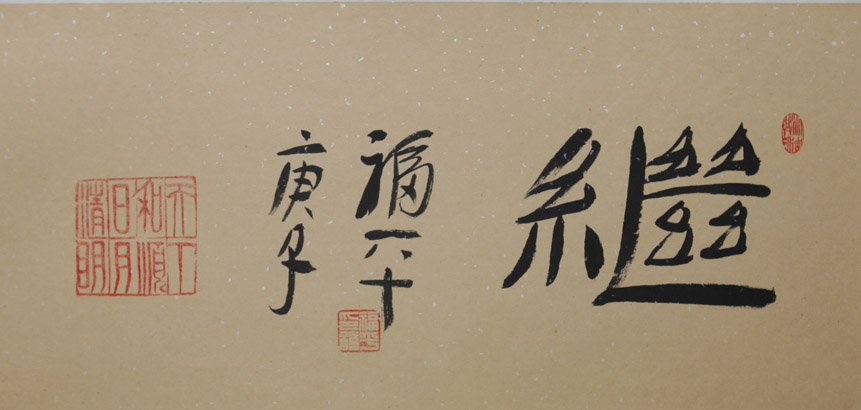 繼
福平
庚子
天下和順日月清明